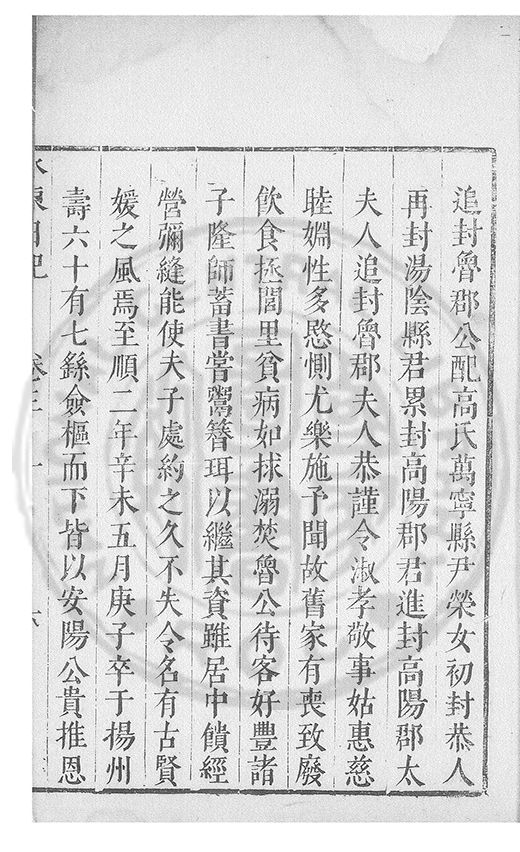 追封魯郡公配高氏萬寧縣尹榮女初封恭人
再封湯陰縣君累封高陽郡君進封高陽郡太
夫人追封魯郡夫人恭謹令淑孝敬事姑惠慈
睦婣性多慜惻尤樂施予聞故舊家有喪致廢
飲食拯閭里貧病如捄溺焚魯公待客好豐諸
子隆師蓄書嘗鬻簪珥以繼其資雖居中饋經
營彌縫能使夫子處約之久不失令名有古賢
媛之風焉至順二年辛未五月庚子卒于揚州
壽六十有七繇僉樞而下皆以安陽公貴推恩
水東日記 卷三